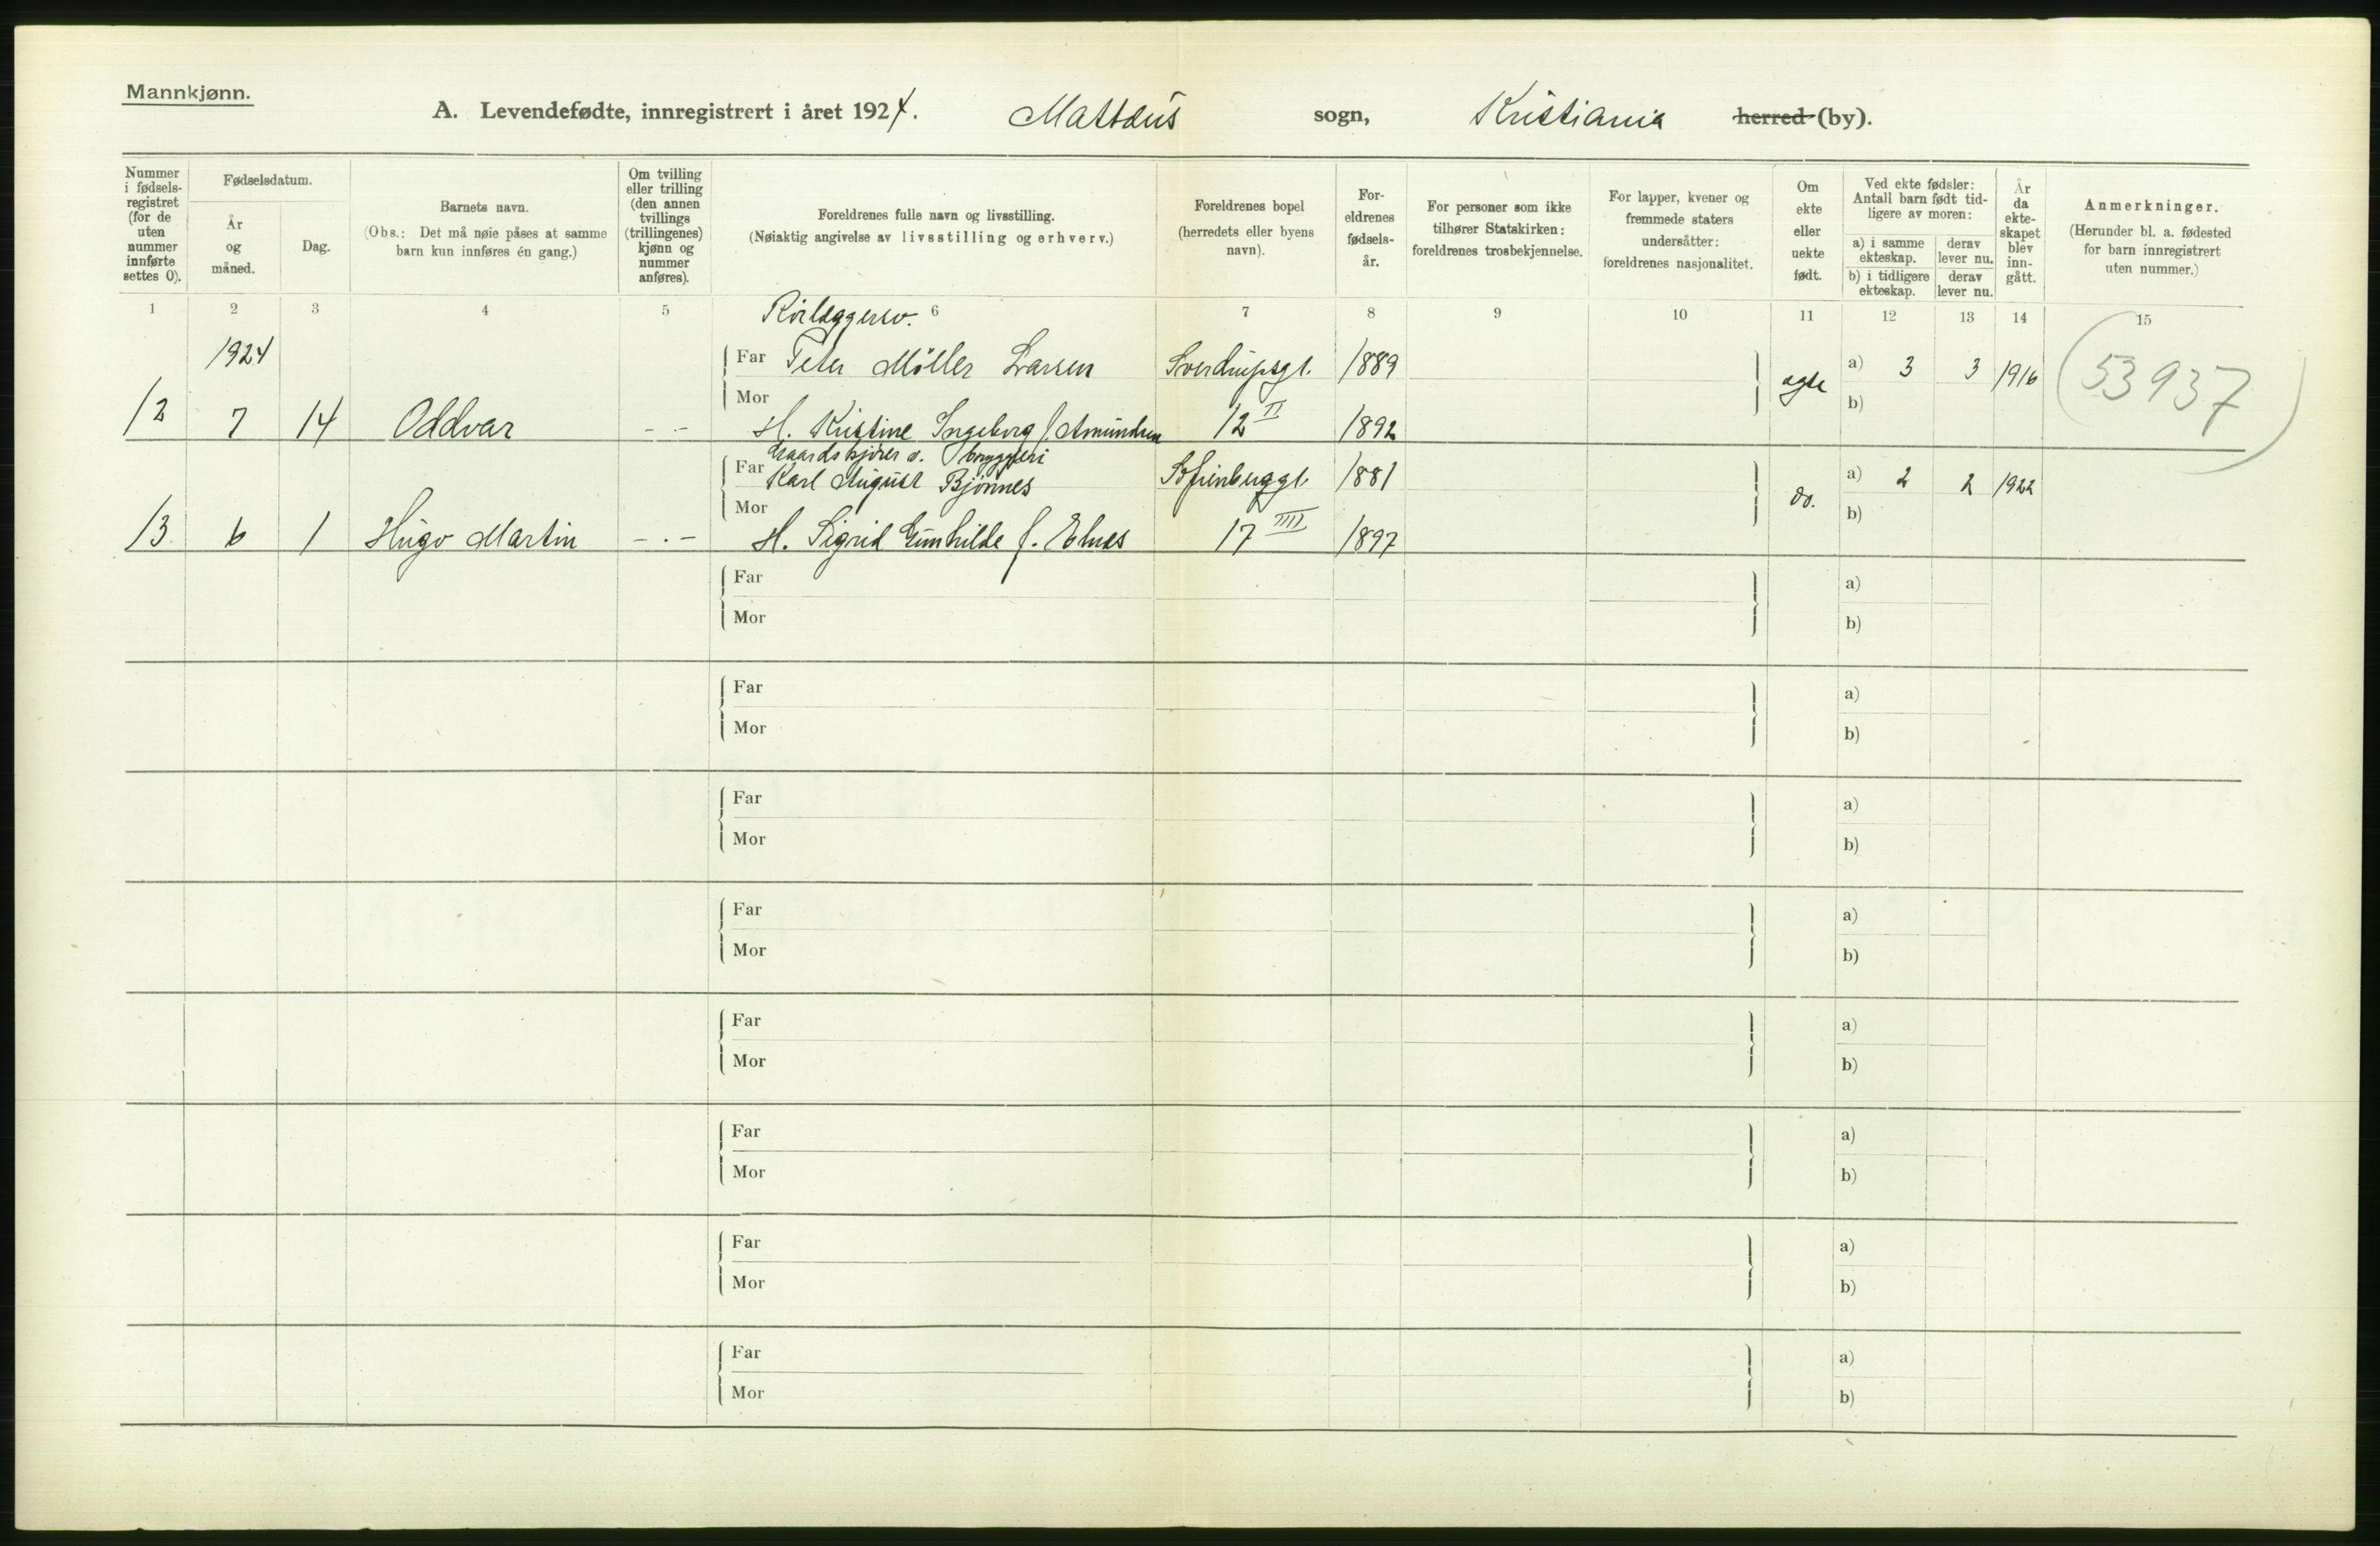 Mannkjønn.
A. Levendefødte, innregistrert i året 1924. Mattæus sogn, Kristiania herred (by).
Nummer i fødsels-registret (for de uten nummer innførte settes 0).
Fødselsdatum.
År og måned.
Dag.
Barnets navn.
(Obs.: Det må nøie påses at samme barn kun innføres én gang.)
Om tvilling eller trilling (den annen tvillings (trillingenes) kjønn og nummer anføres).
Foreldrenes fulle navn og livsstilling.
(Nøiaktig angivelse av livsstilling og erhverv.)
Foreldrenes bopel (herredets eller byens navn).
For-eldrenes fødsels-år.
For personer som ikke tilhører Statskirken: foreldrenes trosbekjennelse.
For lapper, kvener og fremmede staters undersåtter: foreldrenes nasjonalitet.
Om ekte eller uekte født.
Ved ekte fødsler: Antall barn født tid-ligere av moren:
a) i samme ekteskap. derav lever nu.
b) i tidligere ekteskap. derav lever nu.
År da ekte-skapet blev inn-gått.
Anmerkninger.
(Herunder bl. a. fødested for barn innregistrert uten nummer.)
1 2 3 4 5 6 7 8 9 10 11 12 13 14 15
Rörlæggersv.
1924 Far Peter Möller Larsen Sverdrupsgt. 1889 a) 3 3 1916 (53937)
12 7 14 Oddvar - . - Mor H. Kristine Ingeborg f. Amundsen 12 II 1892 ægte b)
Gaardskjører v. bryggeri
Far Karl August Bjönnes Sofienberggt. 1881 a) 2 2 1922
13 6 1 Hugo Martin - . - Mor H. Sigrid Gunhilde f. 17 IIII 1897 do. b)
Far a)
Mor b)
Far a)
Mor b)
Far a)
Mor b)
Far a)
Mor b)
Far a)
Mor b)
Far a)
Mor b)
Far a)
Mor b)
Far a)
Mor b)